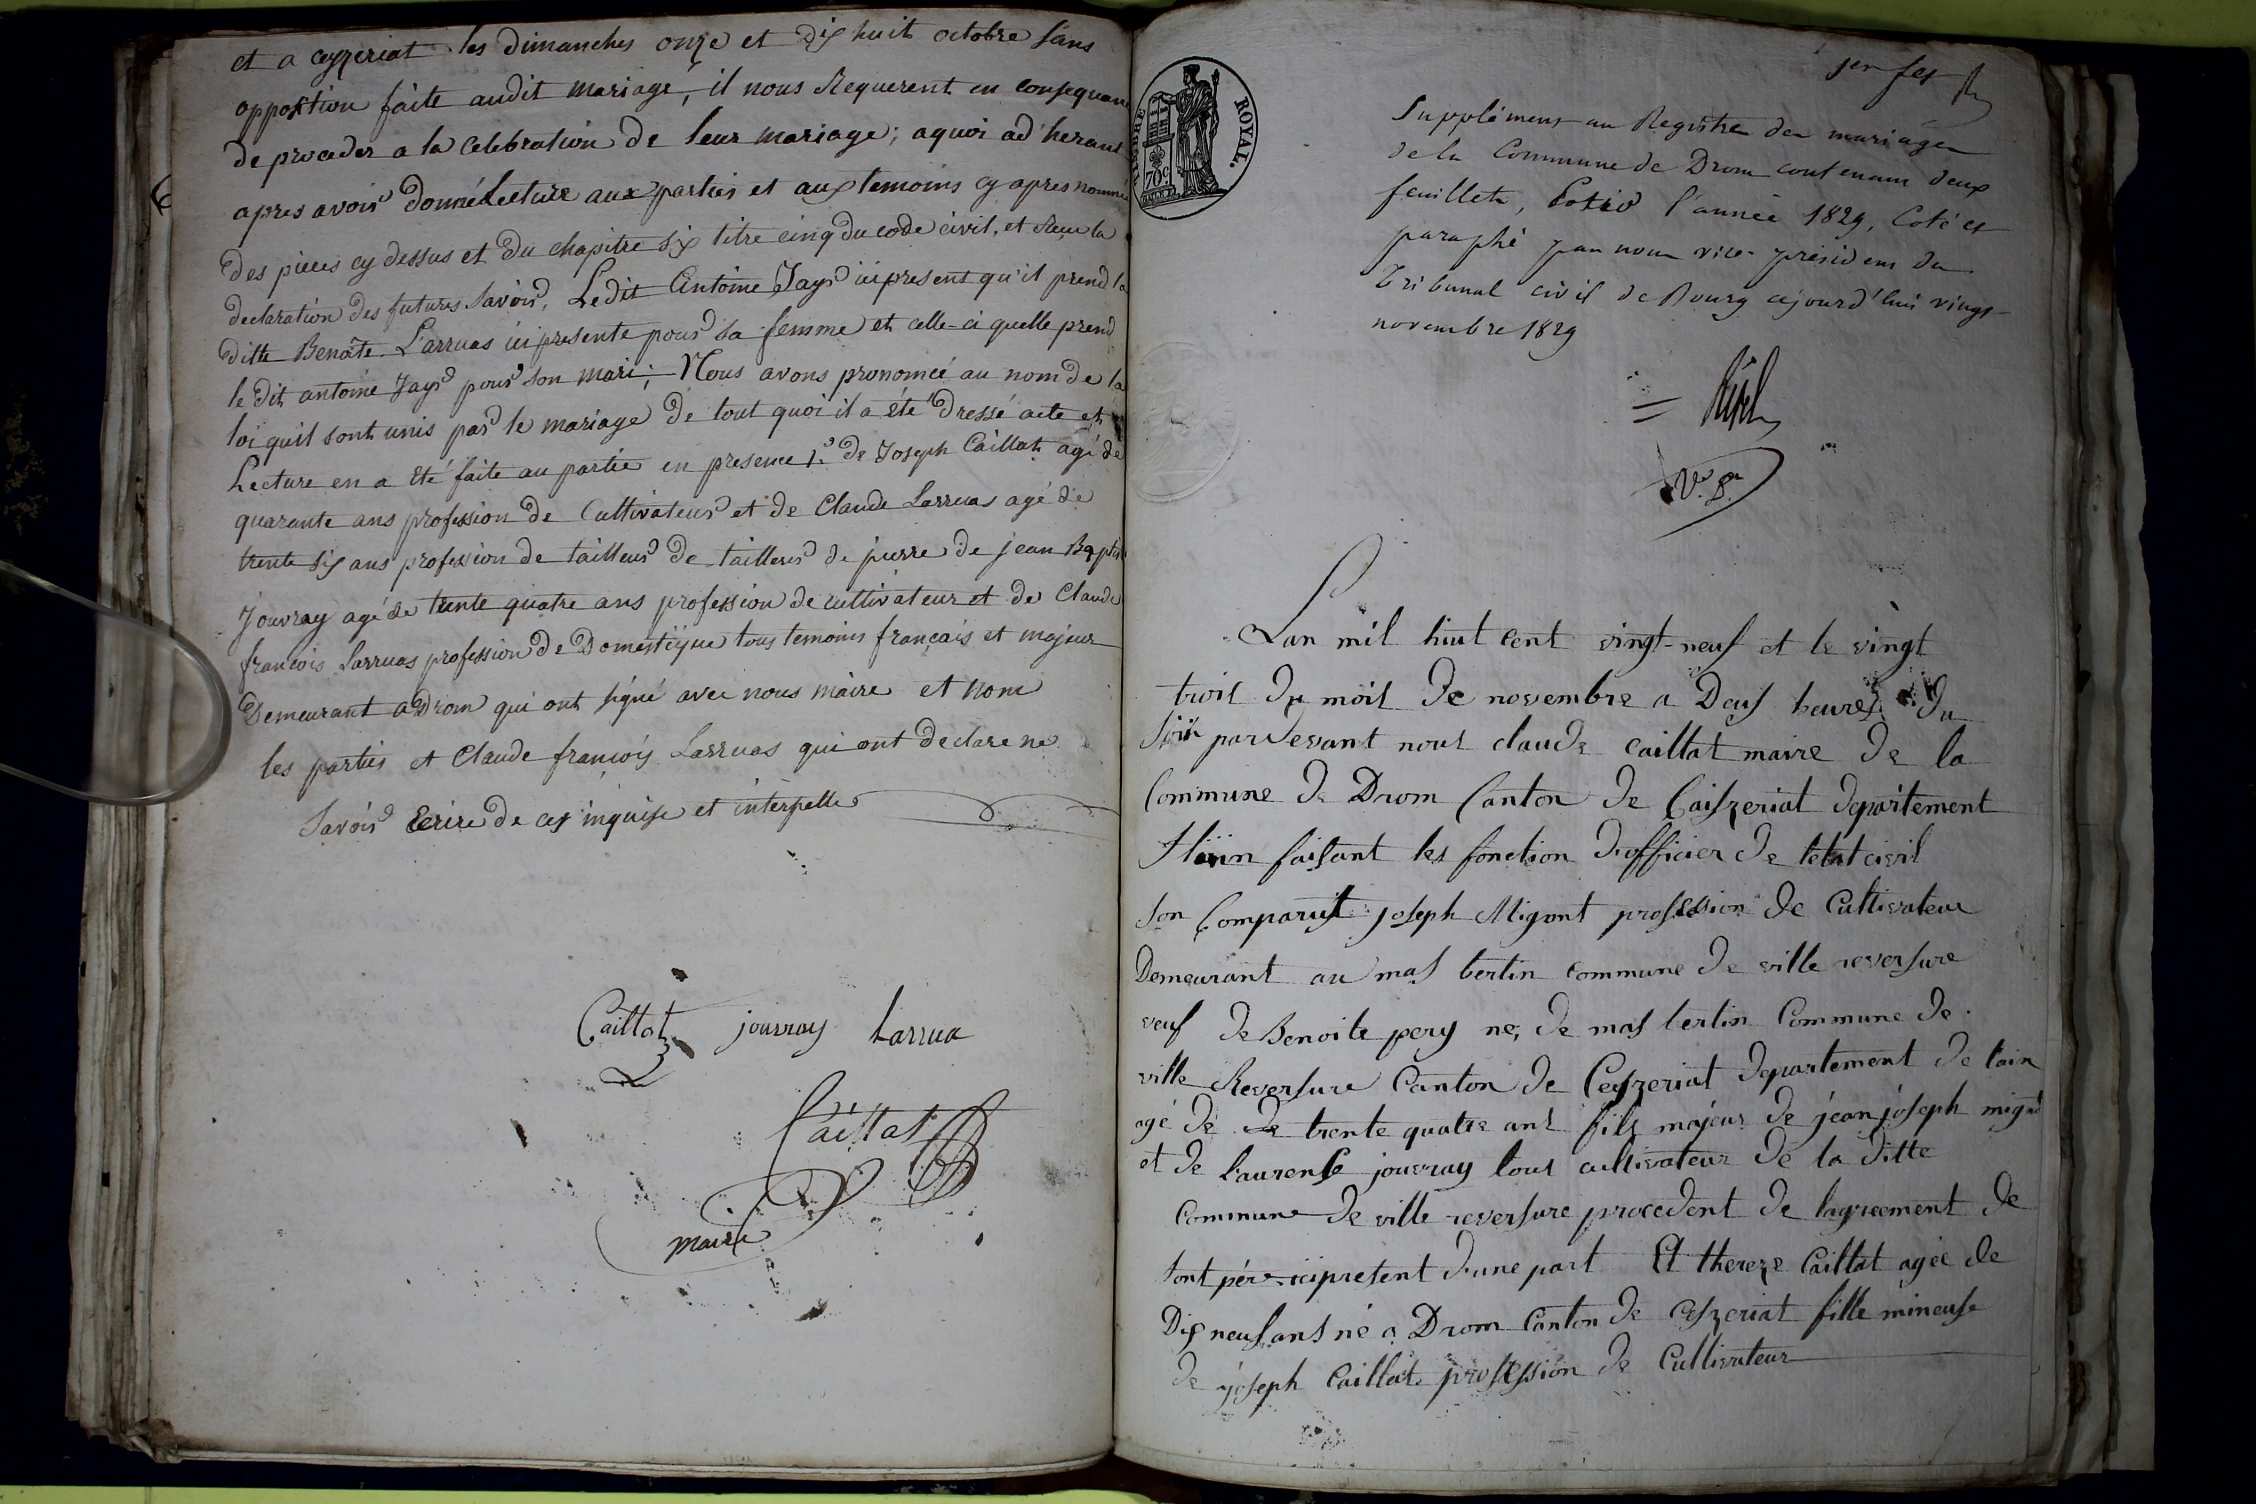 et a ceyzeriat les dimanches onze et dix huit octobre sans
opposition faite audit mariage, il nous Requerent en consequance
de proceder a la celebration de leur mariage; aquoi ad'herant
apres avoir donné Lecture aux parties et aux temoins cy apres nommé
des pieces cy dessus et du chapitre six titre cinq du code civil, et Reçu la
declaration des futures savoir, Le dit Antoine Jays ici present qu'il prend la
ditte Benoite Larruas ici presente pour sa femme et celle-ci quelle prend
le dit antoine Jays pour son mari; Nous avons prononcé au nom de la
loi quil sont unis par le mariage de tout quoi il a été dressé acte et
Lecture en a été faite au partie en presence 1.° de Joseph Caillat agé de
quarante ans profession de Cultivateur et de Claude Larruas agé de
trente six ans profession de tailleur de tailleur de pierre de jean Baptis
Jouvray agé de trente quatre ans profession de cultivateur et de Claude
francois Larruas profession de Domestique tous temoins français et majeur
Demeurant a Drom qui ont signé avec nous maire et nom
les parties et Claude françois Larruas qui ont declare ne
savoir Ecrire de ces inquise et interpelle
Caillat jouvray Larrua
Caillat
maire
TIMBRE ROYAL.
70c
1er fet
Supplément au Registre des mariages
de la Commune de Drom contenant deux
feuillets, l'année 1829, Coté et
paraphé par nous vice-président du
Tribunal civil de Bourg cejourd'hui vingt
novembre 1829
V. P.
Lan mil huit cent vingt-neuf et le vingt
trois du mois de novembre a Deux heures du
soir pardevant nous claude caillat maire de la
Commune de Drom Canton de Caiszeriat departement
faisant les fonction d'officier de letat civil
son Comparut joseph Migont profession de Cultivateur
Demeurant au mas bertin commune de ville reversure
veuf de Benoite pery ne, de mas bertin Commune de
ville Reversure Canton de Ceyzeriat departement de lain
agé de de trente quatre ans fils majeur de jean joseph
et de Laurense jouvray tous cultivateur de la ditte
Commune de ville reversure procedent de lagreement de
sont pére ici pretent d'une part Et thereze Caillat agée de
Dix neuf ans né a Drom Canton de ceszeriat fille mineuse
de joseph Caillat profession de Cultivateur